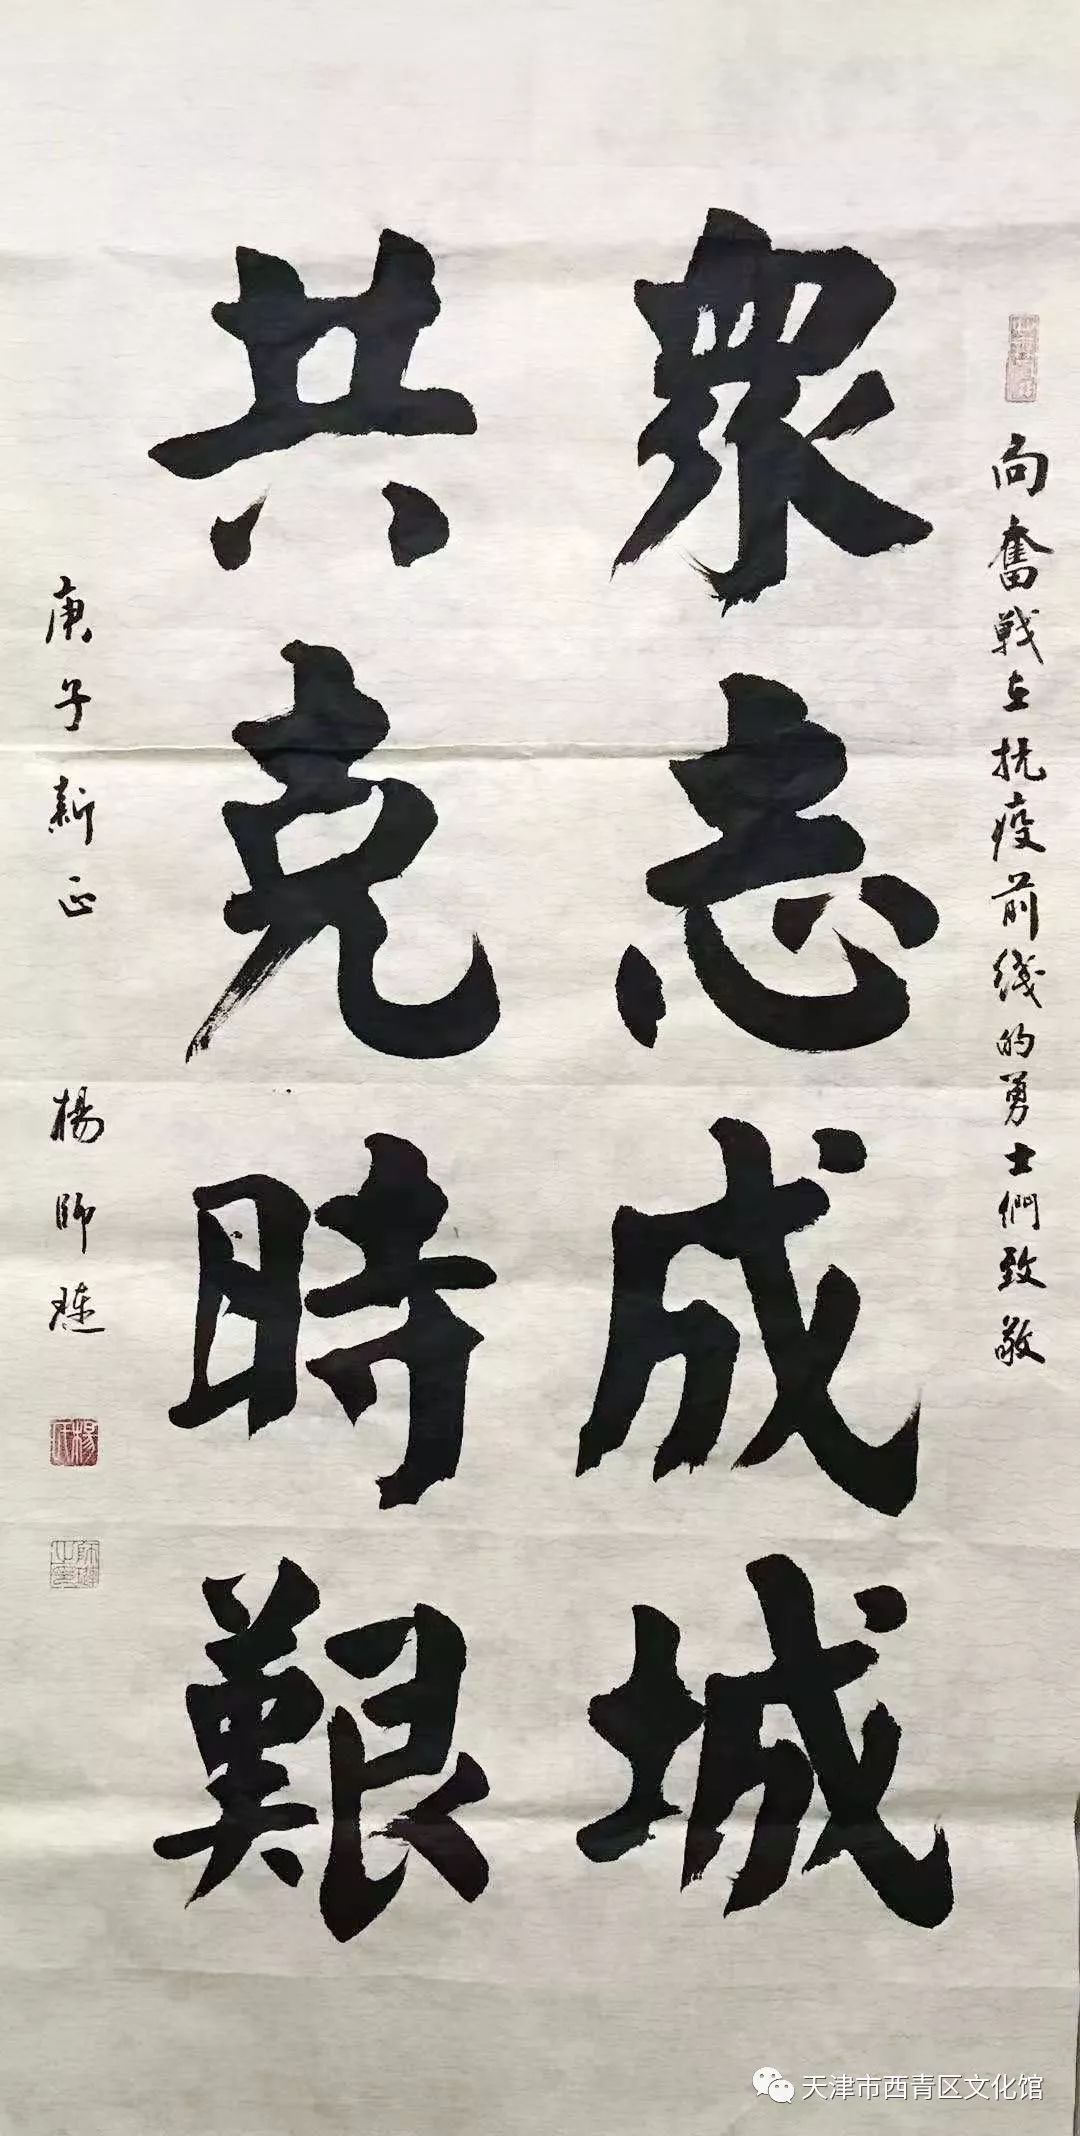 向奮戰在抗疫前綫的勇士們致敬
眾志成城
共克時艱
庚子新正 楊師琏
楊氏
天津市西青区文化馆